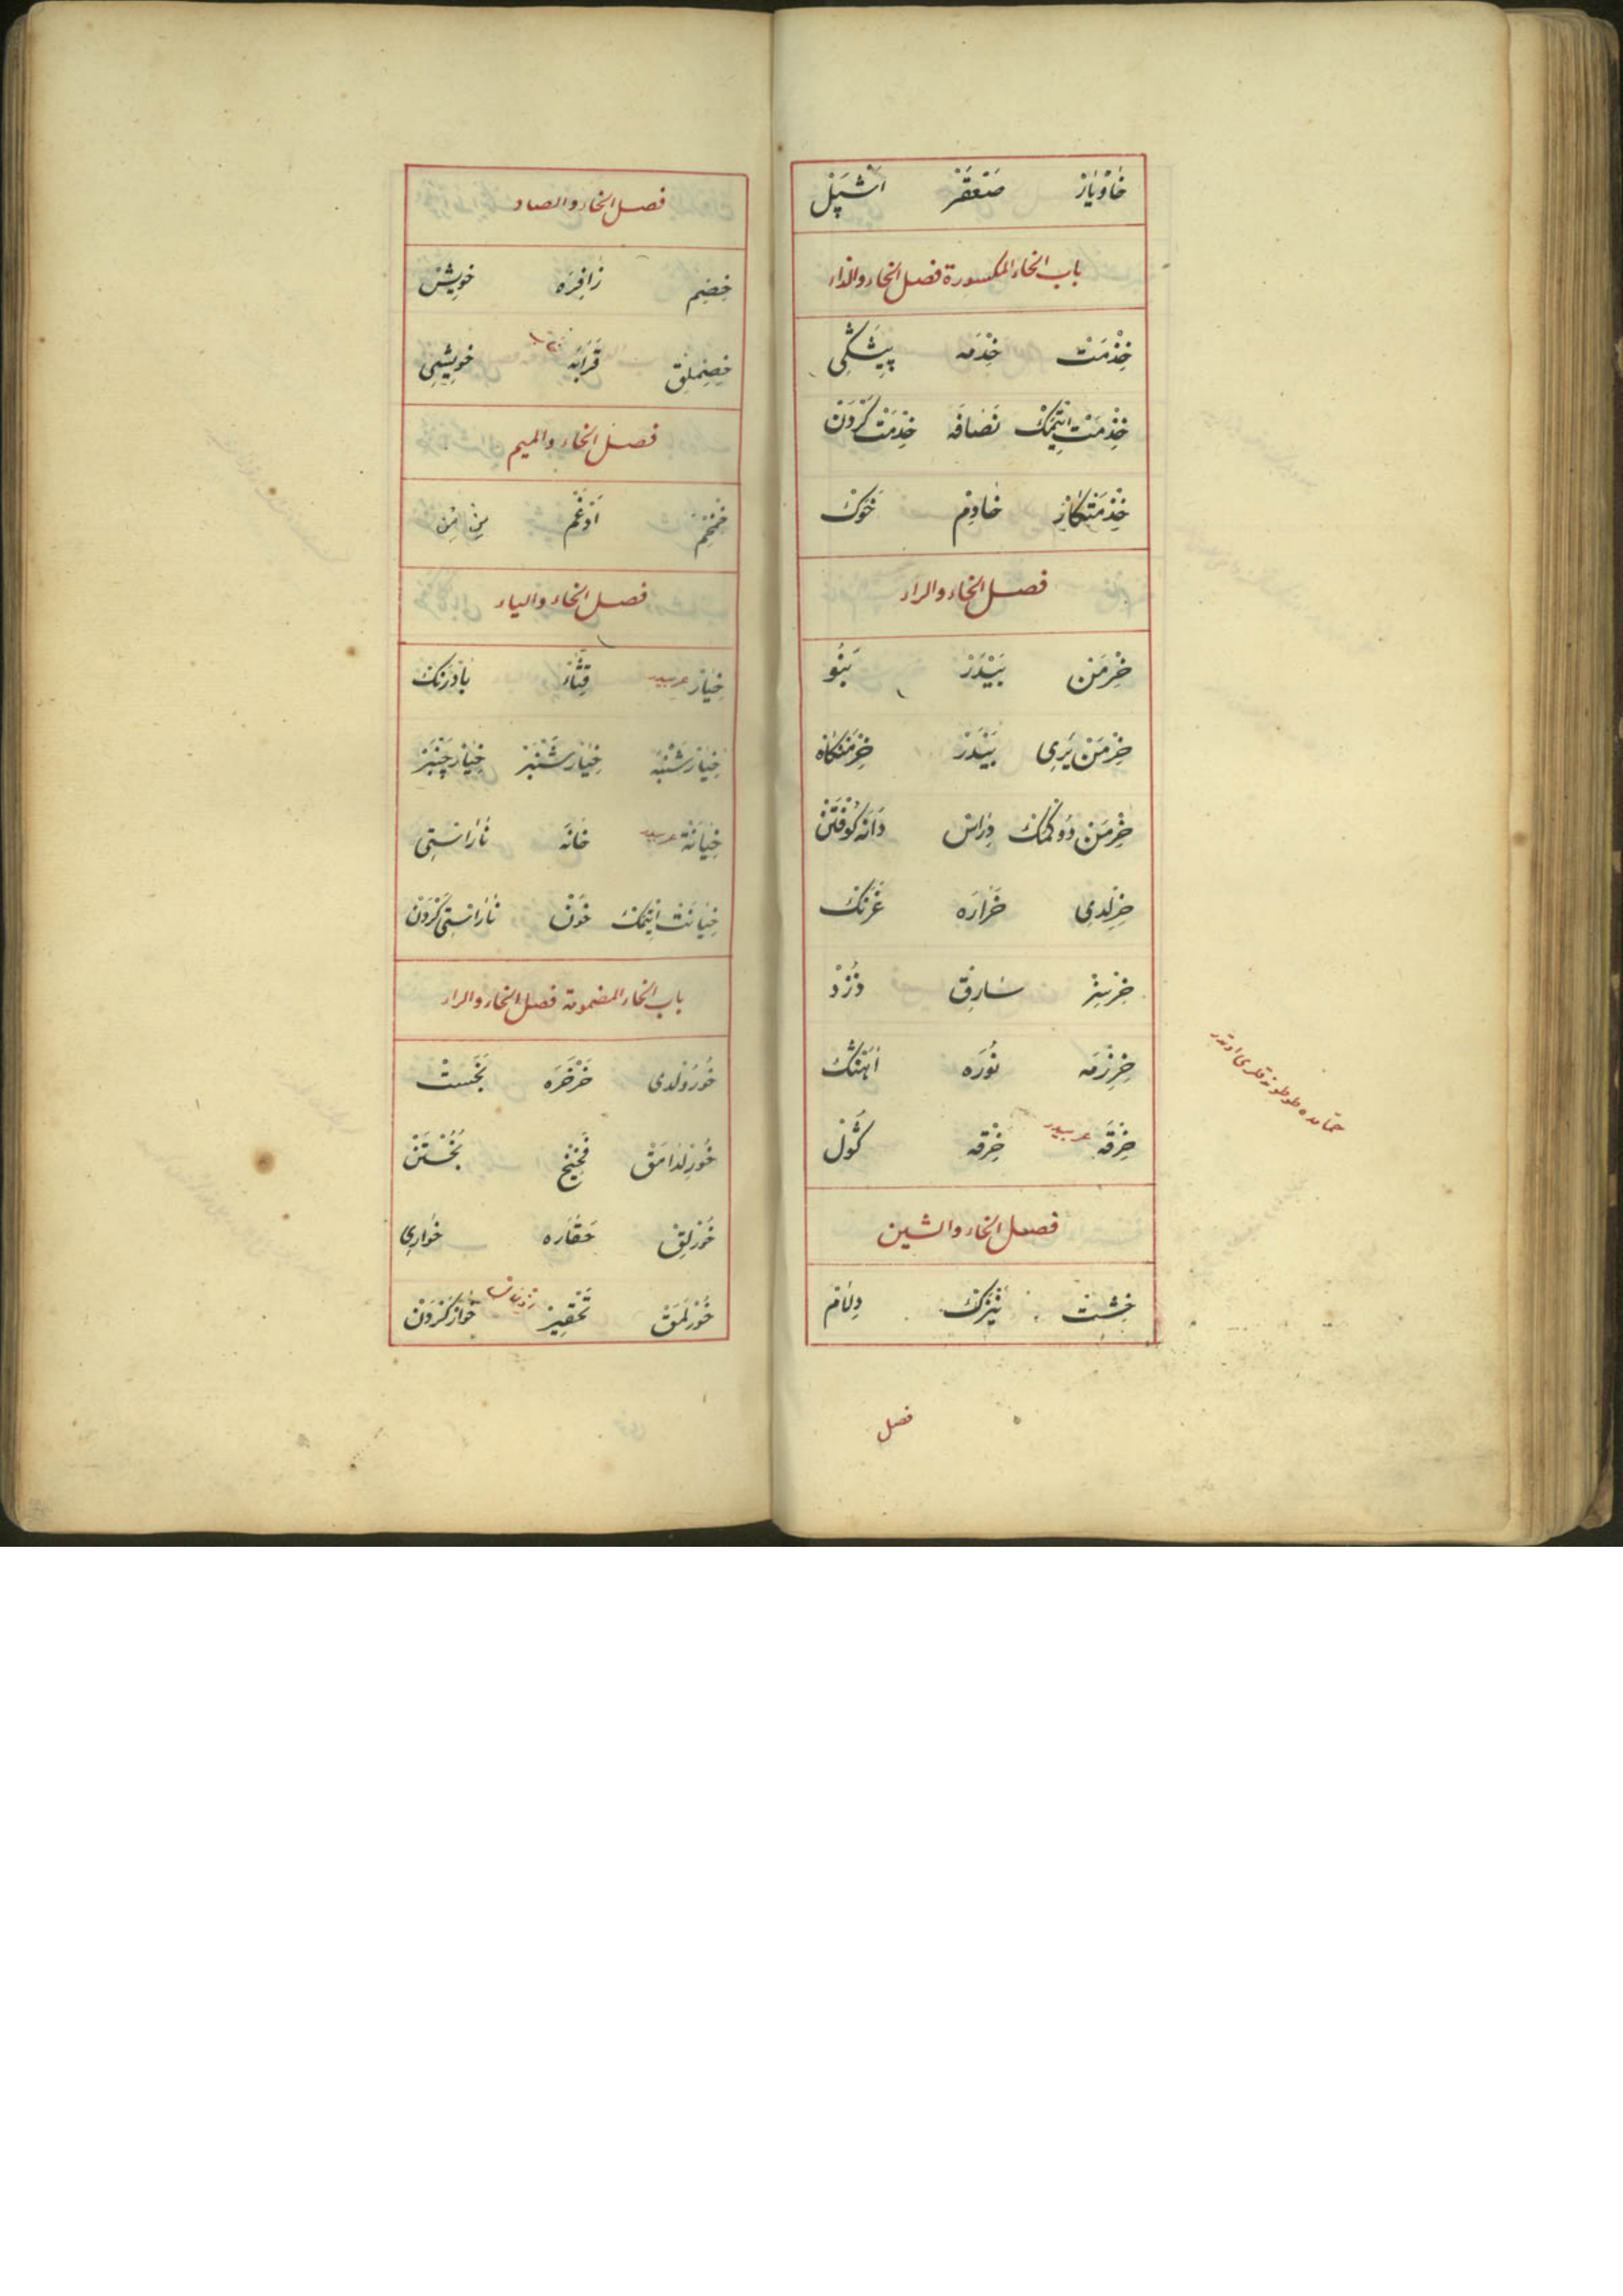 خَاوْيَارْ صَعْقَرْ اَشْپَلْ
باب الخاء المكسورة فصل الخاء والذال
خِذْمَتْ خِذْمَه پِيشَكِى
خِذْمَتْ اِيتْمَكْ نَصَافَه خِذْمَتْ كَرْدَنْ
خِذْمَتْكَارْ خَادِمْ خَوَكْ
فصل الخاء والراء
خِرْمَنْ بَيْدَرْ بَنُو
خِرْمَنْ يَرِى بَيْدَرْ خِرْمَنْكَاه
خِرْمَنْ دُوكْمَكْ دِرَاسْ دَانَه كُوفْتَنْ
خِرِلْدِى خَرَارَه غَرَنْكْ
خِرْسِزْ سَارِقْ دُزْدْ
خِرِزْمَه نُورَه اَهَنْكْ
خِرْقَه عربيدر خِرْقَه كَوْلْ
حمامده طوطونه قلرى اوتدر
فصل الخاء والشين
خِشْتْ نَيْزَكْ دِلَامْ
فصل
فصل الخاء والصاد
خِصِم زَافِرَه خويِشْ
خِصِمْلِقْ قَرَابَه خويِشِى
فصل الخاء والميم
خِمْخِمْ اَدْغَمْ مِنْ مِنْ
فصل الخاء والياء
خِيَارْ عربيدر قِثَّاءْ بَادَرَنْكْ
خِيَارْ شَنْبَه خِيَارْ شَنْبَرْ خِيَارْ چَنْبَرْ
خِيَانَة عربيدر خَانَة نَارَاسْتِى
خِيَانَتْ اِيتْمَكْ خَوْنْ نَارَاسْتِى كَرْدَنْ
باب الخاء المضمومة فصل الخاء والراء
خُورُولْدِى خَرْخَرَه بَخَسْتْ
خُورْلَدَامَقْ فَخِيخْ بُخُسْتَنْ
خُورْلِقْ حَقَارَه خَوارِى
خُورْلَمَقْ تَحْقِيرْ خَوارْ كَرْدَنْ